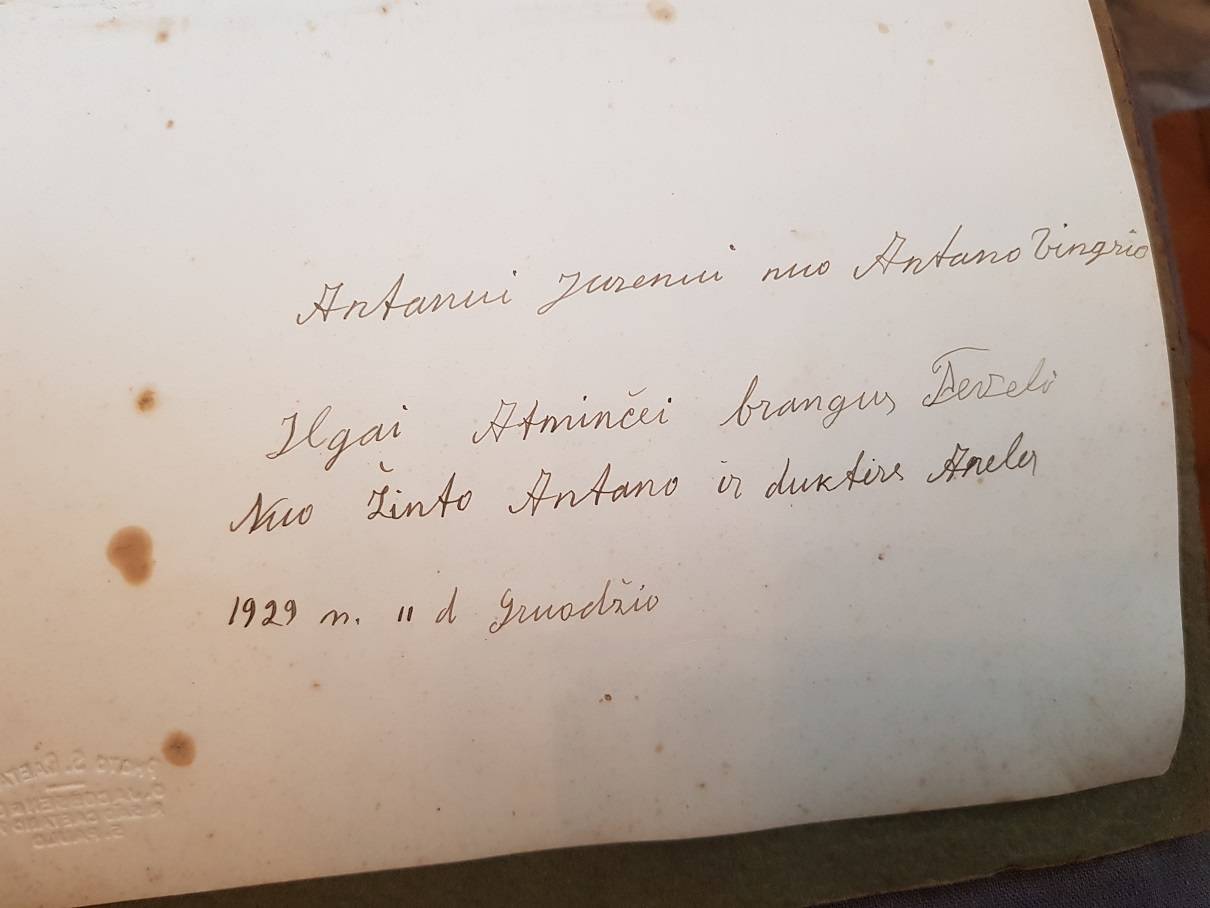 Antanui Jurenui nuo Antano Vingrio
Ilgai Atminčei brangus Tevzeli
Nuo Žinto Antano ir dukters Aneles
1929 m. 11 d Gruodžio
PHOTO S.
S. PAULO